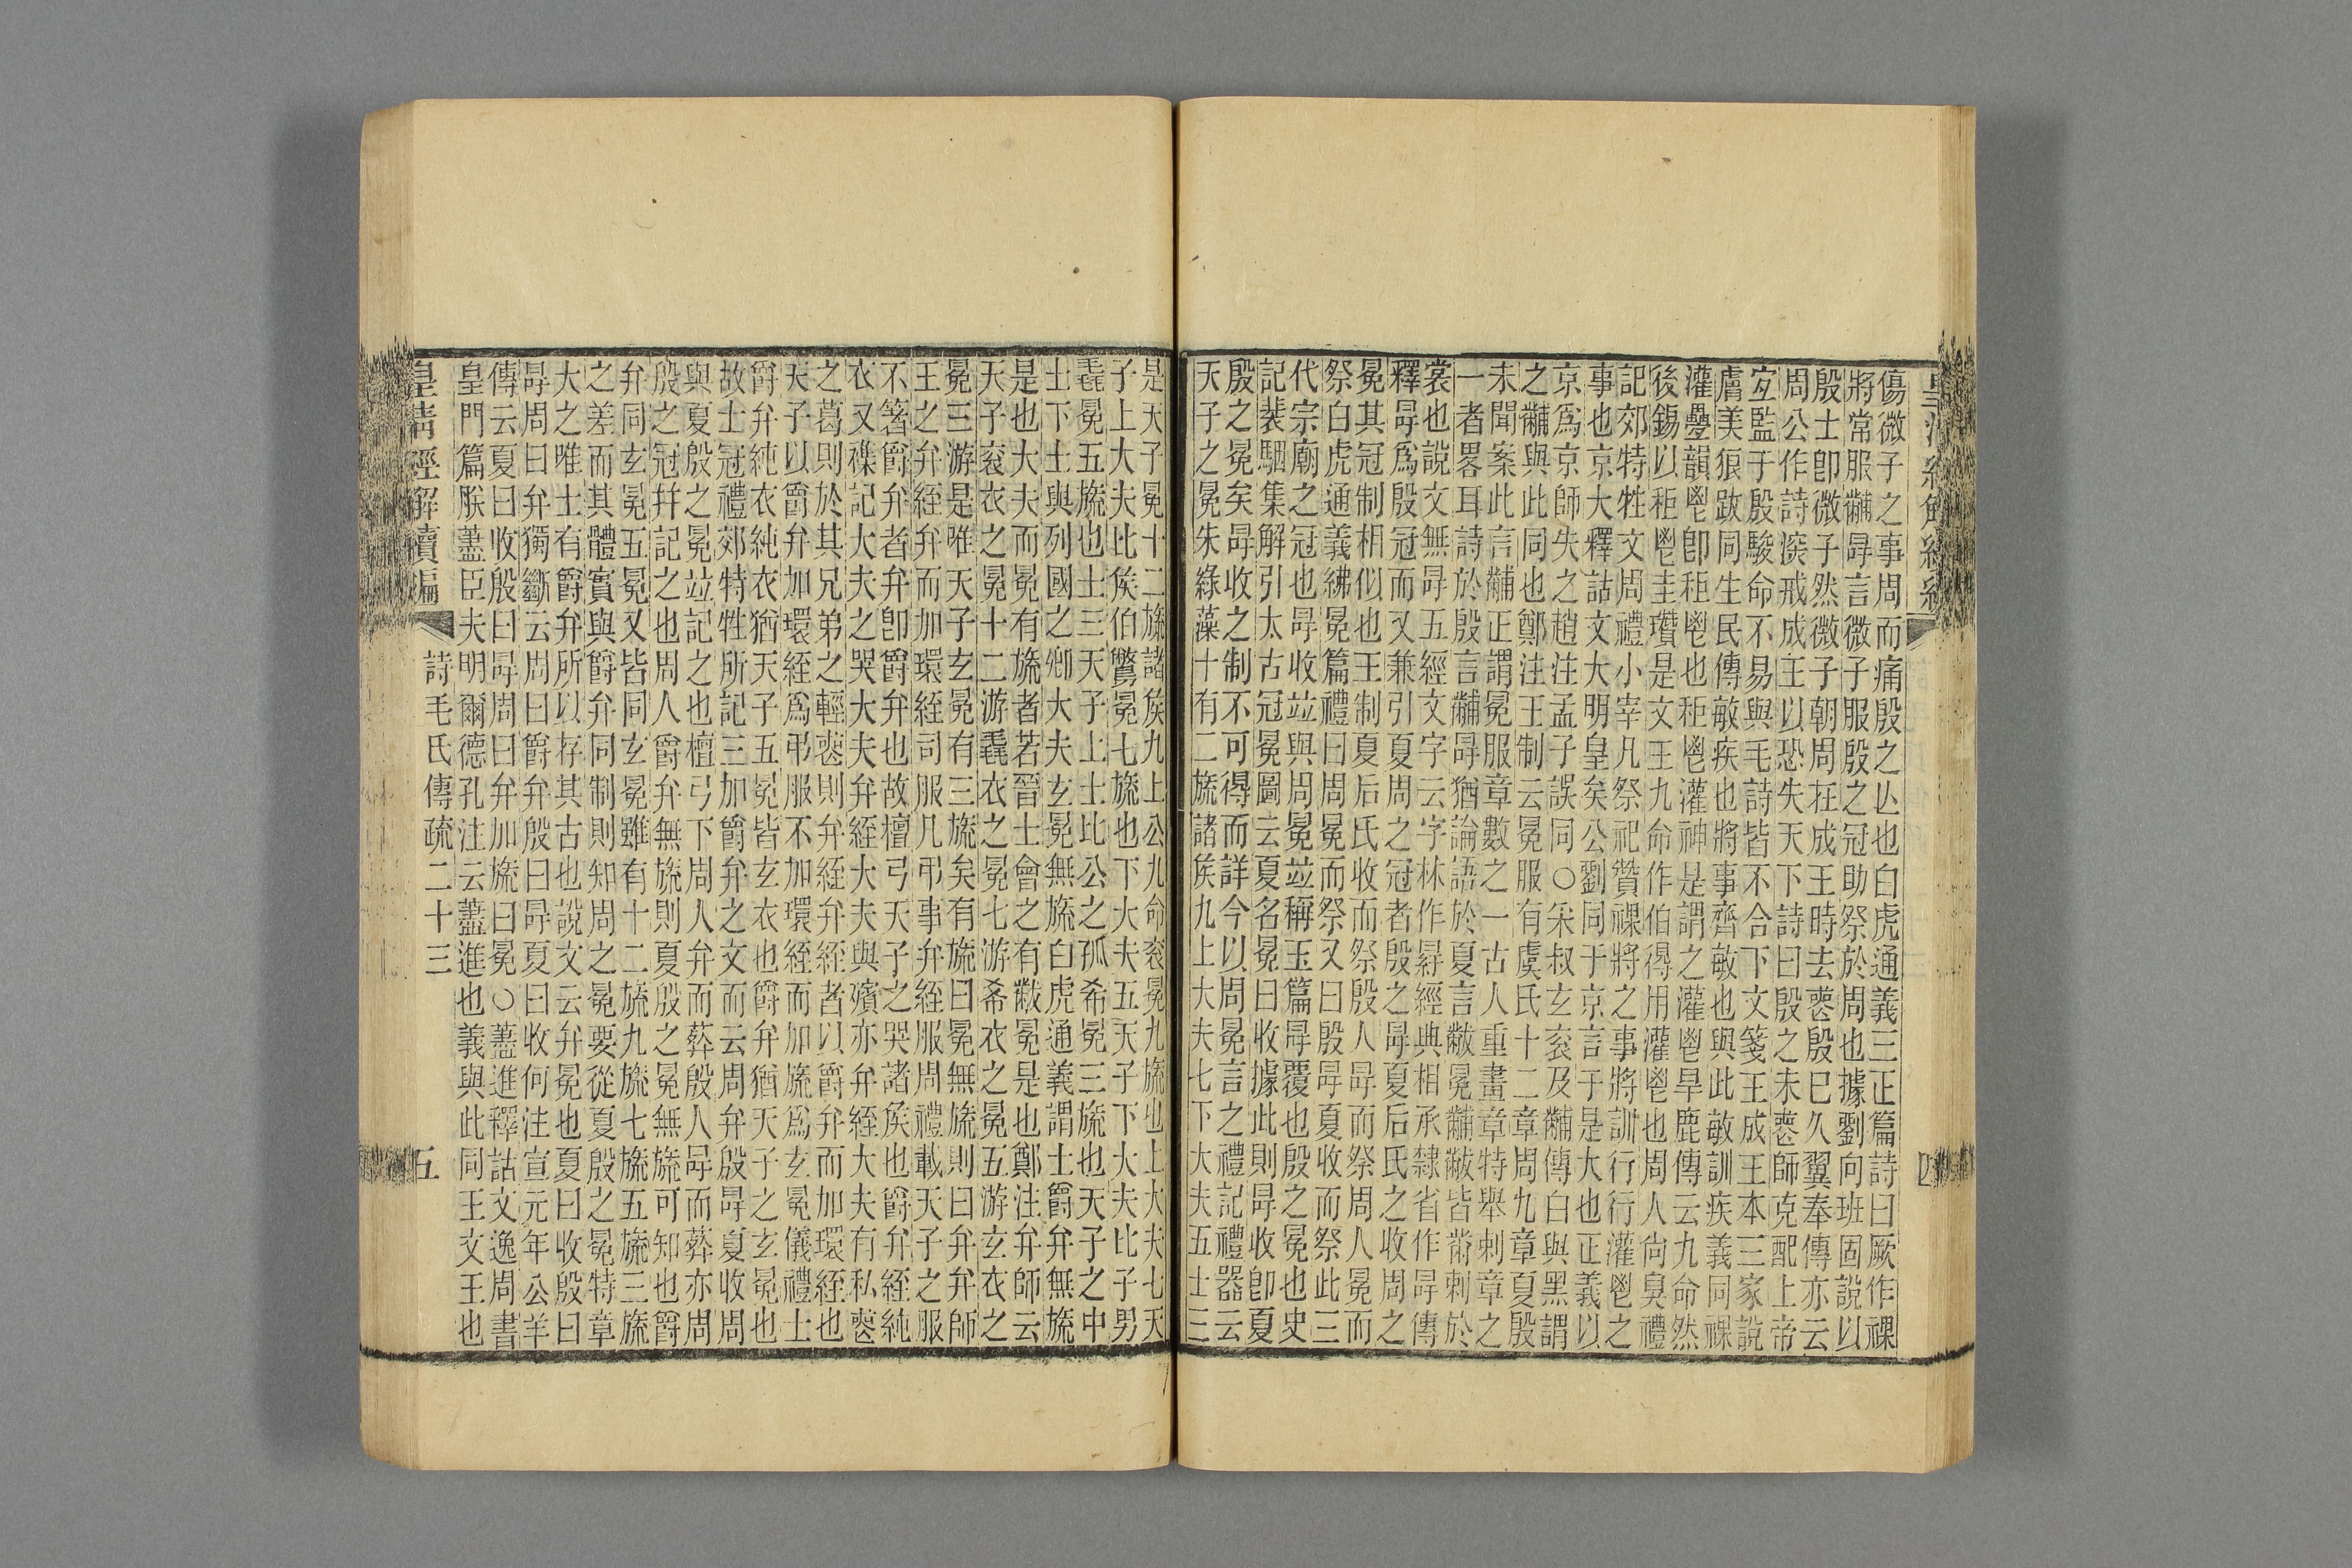 皇清經解續編
四
傷微子之事周而痛殷之亾也白虎通義三正篇詩曰厥作祼
將常服黼冔言微子服殷之冠助祭於周也據劉向班固說以
殷士卽微子然微子朝周在成王時去䘮殷巳久翼奉傳亦云
周公作詩深戒成王以恐失天下詩曰殷之未䘮師克配上帝
宐監于殷駿命不易與毛詩皆不合下文箋王成王本三家說
膚美狼跋同生民傳敏疾也將事齊敏也與此敏訓疾義同祼
灌疊韻鬯卽秬鬯也秬鬯灌神是謂之灌鬯旱鹿傳云九命然
後錫以秬鬯圭瓚是文王九命作伯得用灌鬯也周人尙臭禮
記郊特牲文周禮小宰凡祭祀贊祼將之事將訓行行灌鬯之
事也京大釋詁文大明皇矣公劉同于京言于是大也正義以
京爲京師失之趙注孟子誤同○采叔玄袞及黼傳白與黑謂
之黼與此同也鄭注王制云冕服有虞氏十二章周九章夏殷
未聞案此言黼正謂冕服章數之一古人重畫章特舉刺章之
一者畧耳詩於殷言黼冔猶論語於夏言黻冕黼黻皆黹刺於
裳也說文無冔五經文字云字林作冔經典相承隸省作冔傳
釋冔爲殷冠而又兼引夏周之冠者殷之冔夏后氏之收周之
冕其冠制相似也王制夏后氏收而祭殷人冔而祭周人冕而
祭白虎通義紼冕篇禮曰周冕而祭又曰殷冔夏收而祭此三
代宗廟之冠也冔收竝與周冕竝稱玉篇冔覆也殷之冕也史
記裴駰集解引太古冠冕圖云夏名冕曰收據此則冔收卽夏
殷之冕矣冔收之制不可得而詳今以周冕言之禮記禮器云
天子之冕朱綠藻十有二旒諸矦九上大夫七下大夫五士三
是天子冕十二旒諸矦九上公九命袞冕九旒也上大夫七天
子上大夫比矦伯鷩冕七旒也下大夫五天子下大夫比子男
毳冕五旒也士三天子上士比公之孤希冕三旒也天子之中
士下士與列國之卿大夫玄冕無旒白虎通義謂士爵弁無旒
是也大夫而冕有旒者若晉士會之有黻冕是也鄭注弁師云
天子袞衣之冕十二游毳衣之冕七游希衣之冕五游玄衣之
冕三游是唯天子玄冕有三旒矣有旒曰冕無旒則曰弁弁師
王之弁絰弁而加環絰司服凡弔事弁絰服周禮載天子之服
不箸爵弁者弁卽爵弁也故檀弓天子之哭諸矦也爵弁絰純
衣又襍記大夫之哭大夫弁絰大夫與殯亦弁絰大夫有私䘮
之葛則於其兄弟之輕䘮則弁絰弁絰者以爵弁而加環絰也
天子以爵弁加環絰爲弔服不加環絰而加旒爲玄冕儀禮士
爵弁純衣純衣猶天子五冕皆玄衣也爵弁猶天子之玄冕也
故士冠禮郊特牲所記三加爵弁之文而云周弁殷冔夏收周
與夏殷之冕竝記之也檀弓下周人弁而葬殷人冔而葬亦周
殷之冠幷記之也周人爵弁無旒則夏殷之冕無旒可知也爵
弁同玄冕五冕又皆同玄冕雖有十二旒九旒七旒五旒三旒
之差而其體實與爵弁同制則知周之冕要從夏殷之冕特章
大之唯士有爵弁所以存其古也說文云弁冕也夏曰收殷曰
冔周曰弁獨斷云周曰爵弁殷曰冔夏曰收何注宣元年公羊
傳云夏曰收殷曰冔周曰弁加旒曰冕○藎進釋詁文逸周書
皇門篇朕藎臣夫明爾德孔注云藎進也義與此同王文王也
皇清經解續編
詩毛氏傳疏二十三
五